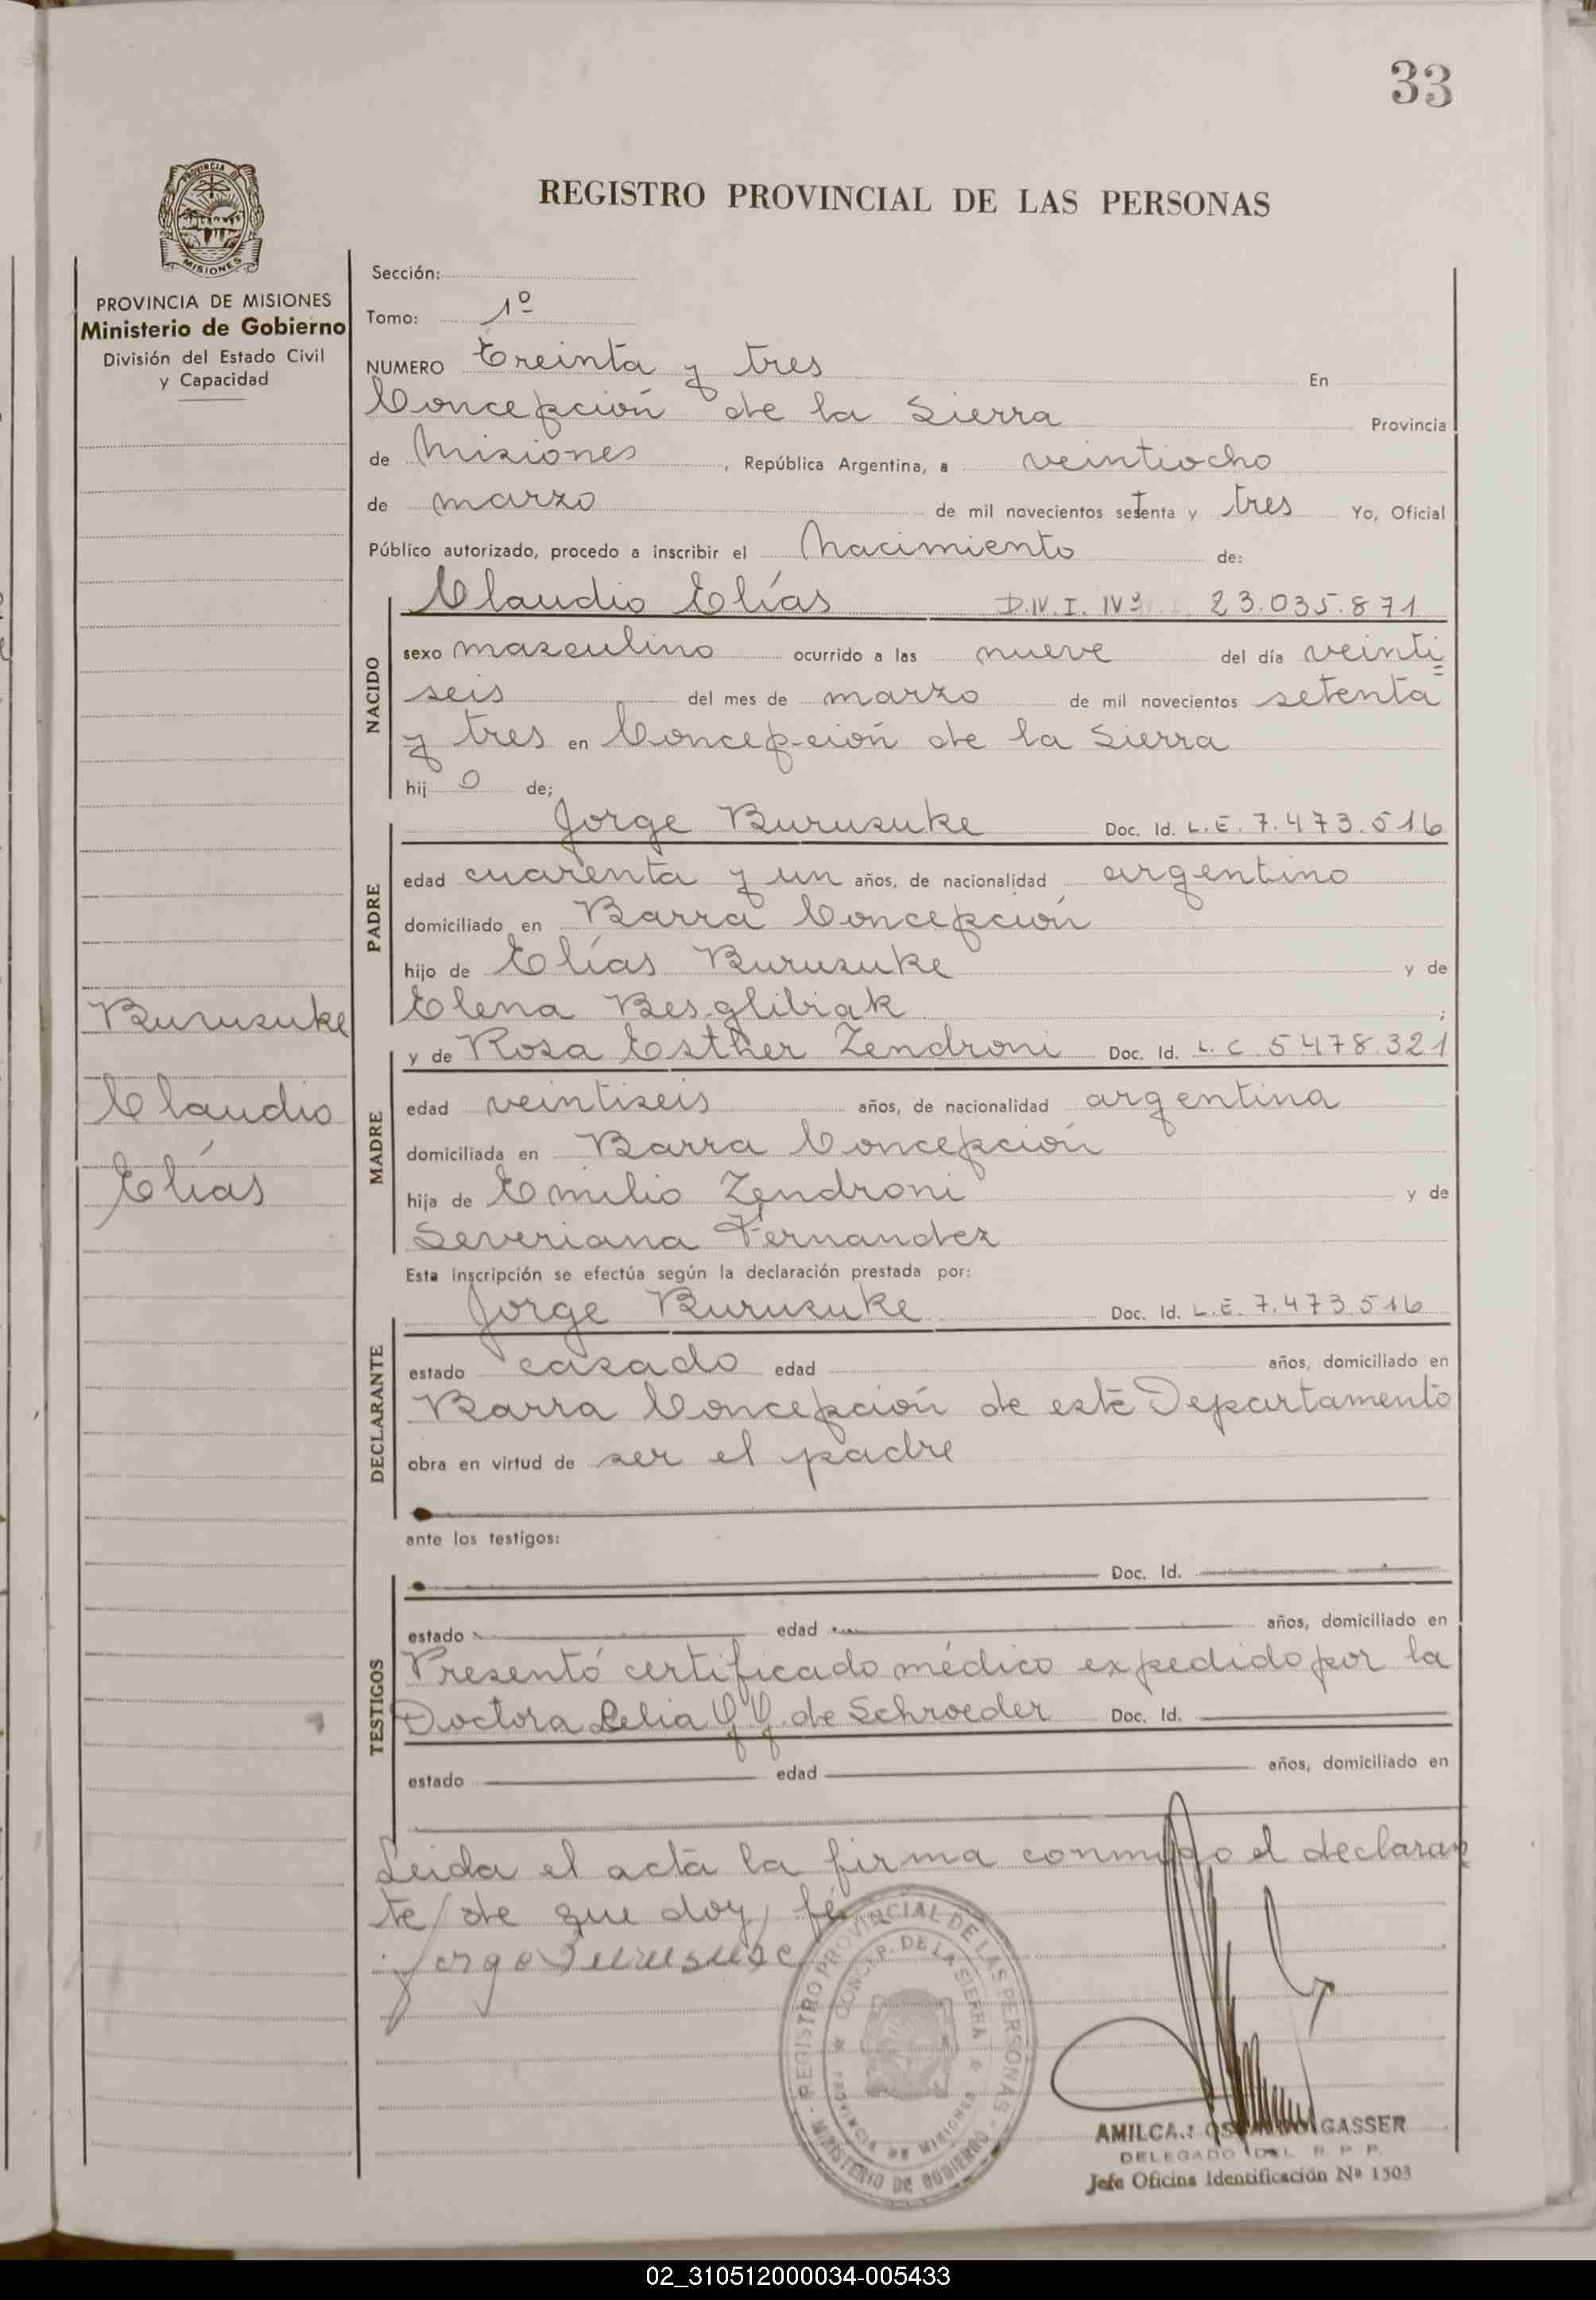 33
PROVINCIA DE
MISIONES
REGISTRO PROVINCIAL DE LAS PERSONAS
PROVINCIA DE MISIONES
Ministerio de Gobierno
División del Estado Civil
y Capacidad
Sección:
Tomo: 1º
NUMERO Treinta y tres En
Concepción de la Sierra Provincia
de Misiones, República Argentina, a veintiocho
de marzo de mil novecientos setenta y tres Yo, Oficial
Público autorizado, procedo a inscribir el Nacimiento de:
NACIDO
Claudio Elías 23.035.871
sexo masculino ocurrido a las nueve del día veinti=
seis del mes de marzo de mil novecientos setenta
y tres en Concepción de la Sierra
hij o de;
PADRE
Jorge Burusuke Doc. Id. L.E. 7.473.516
edad cuarenta y un años, de nacionalidad argentino
domiciliado en Barra Concepción
hijo de Elías Burusuke y de
Elena Besglibiak ;
Burusuke
Claudio
Elías
MADRE
y de Rosa Esther Zendroni Doc. Id. L.C. 5478.321
edad veintiseis años, de nacionalidad argentina
domiciliada en Barra Concepción
hija de Emilio Zendroni y de
Severiana Fernandez
Esta inscripción se efectúa según la declaración prestada por:
DECLARANTE
Jorge Burusuke Doc. Id. L.E. 7.473.516
estado casado edad años, domiciliado en
Barra Concepción de este Departamento
obra en virtud de ser el padre
ante los testigos:
TESTIGOS
Doc. Id.
estado edad años, domiciliado en
Presentó certificado médico expedido por la
Doctora Lelia de Schroeder Doc. Id.
estado edad años, domiciliado en
Leida el acta la firma conmigo el declaran
te/ de que doy fé
Jorge Burusuke
REGISTRO PROVINCIAL DE LAS PERSONAS - MINISTERIO DE GOBIERNO -
CONCEP. DE LA SIERRA PROVINCIA DE MISIONES
GASSER
DELEGADO DEL R. P. P.
Jefe Oficina Identificación Nº 1503
02_310512000034-005433